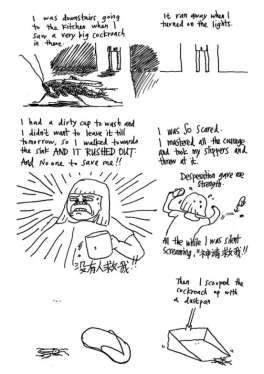 I was downstairs going
to the kitchen when I
saw a very big cockroach
in there.
It ran away when I
turned on the lights.
I had a dirty cup to wash and
I didn't want to leave it till
tomorrow, so I walked towards
the sink AND IT RUSHED OUT.
And No one to save me!!
没有人救我!!
I was SO scared.
I mastered all the courage
and took my slippers and
threw at it.
Desperation gave me
strength.
All the while I was silent
screaming, "神请救我!!
Then I scooped the
cockroach up with
a dustpan